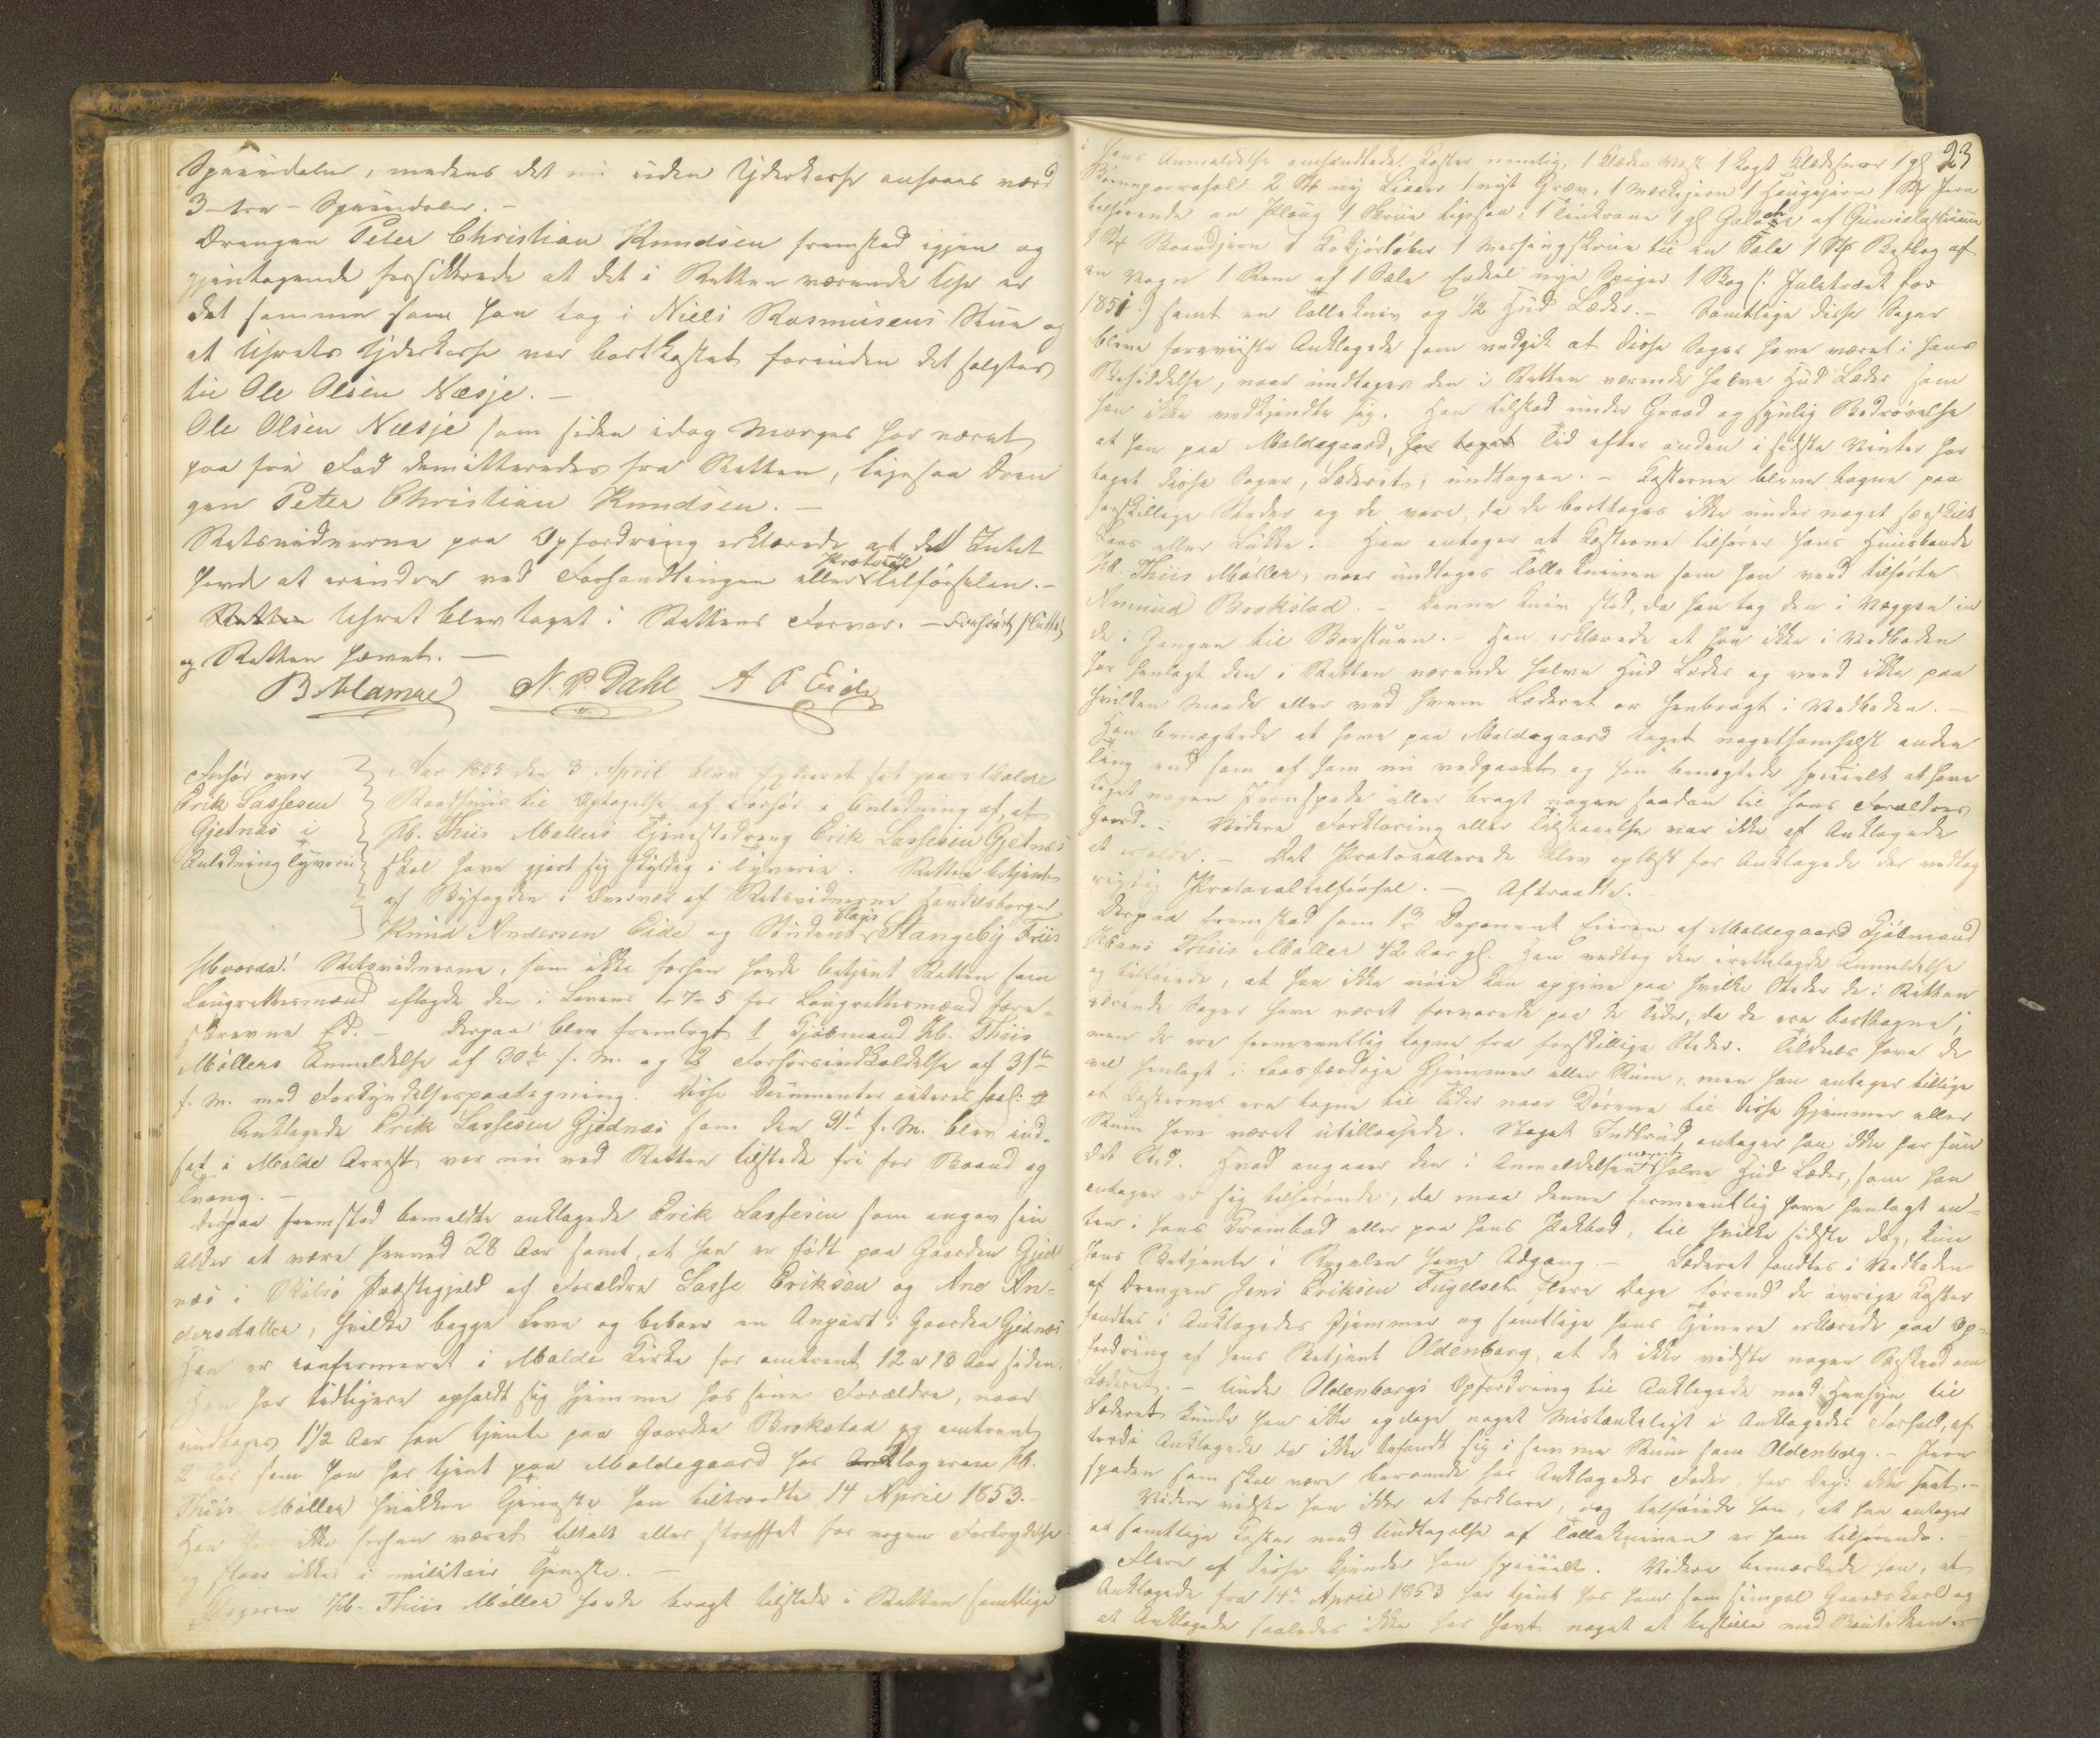 Speciedaler, medens det nu uden Yderkasse ansaaes værd
3 - tre - Speciedaler. -
Drengen Peter Christian Knudsen fremstod igjen og
gjentagende forsikkrede at det i Retten værende Uhr er
det samme som han tog i Niels Rasmusens Stue og
at Uhrets Yderkasse var bortkastet forinden det solgtes
til Ole Olsen Næsje. -
Ole Olsen Næsje som siden idag Morges har været
paa fri Fod demitteredes fra Retten, ligesaa Dren
gen Peter Christian Knudsen. -
Retsvidnerne paa Opfordring erklærede at de Intet
havde at erindre ved Forhandlingen eller Protocol tilførselen. -
Uhret blev taget i Rettens Forvar. - Forhøret sluttet
og Retten hævet. -
N. P. Dahl A P Eide
Forhør over
Erik Lassesen
Gjetnæs i
Anledning Tyverie
Aar 1855 den 3 April blev Forhøret sat paa Molde
Raadhuus til Optagelse af Forhør i Anledning af, at
Hb. Thiis Møllers Tjenestedreng Erik Lassesen Gjetnæs
skal have gjort sig skyldig i Tyverie. Retten betjentes
af Byfogden i Overvær af Retsvidnerne Handelsborger
Knud Andersen Eide og Student Claus Stangeby Friis
Hvorda! Retsvidnerne, som ikke forhen havde betjent Retten som
Laugrettesmænd aflagde den i Lovens 1-7-5 for Laugrettesmænd fore-
skrevne Ed. - Derpaa blev fremlagt 1 Kjøbmand Hb. Thiis
Møllers Anmeldelse af 30te f. M. og 2 Forhørsindkaldelse af 31te
f. M. med Forkyndelsespaategning. Disse Documenter acteres saal: #
Anklagede Erik Lassesen Gjednæs som den 31te f. M. blev ind-
sat i Molde Arrest var nu ved Retten tilstede fri for Baand og
Tvang. -
Derpaa fremstod bemeldte anklagede Erik Lassesen som angav sin
Alder at være henved 28 Aar samt, at han er født paa Gaarden Gjed
næs i Bolsø Præstegjeld af Forældre Lasse Eriksen og Ane An-
dersdatter, hvilke begge leve og beboer en Anpart i Gaarden Gjednæs
Han er confirmeret i Molde Kirke for omtrent 12 a 13 Aar siden.
Han har tidligere opholdt sig hjemme hos sine Forældre, naar
undtages 1½ Aar han tjente paa Gaarden Brokstad og omtrent
2 Aar som han har tjent paa Moldegaard hos Klageren Hb.
Thiis Møller hvilken Tjeneste han tiltraadte 14 April 1853.
Han har ikke forhen været tiltalt eller straffet for nogen Forbrydelse
og staar ikke i militair Tjeneste. -
Klageren Hb. Thiis Møller havde bragt tilstede i Retten samtlige
23
i hans Anmeldelse omhandlede Koster nemlig, 1 Klædes Vest 1 Kort Klædesvær 1 gl
Børneparasol 2 Stk ny Liaaer 1 nyt Græv, 1 Mærkejern 1 Haugejern 1 Stk Jern
tilhørende en Ploug 1 Skrue ligesaa, 1 Tinkrane 1 gl Galoche af Gumielasticum
1 Stk Brændjern 1 1 Messingskrue til en Sale 1 Stk Beslag af
en Vogn 1 Rem af 1 Sæle Endeel nye Spiger 1 Bog (: Juletræet for
1851 :) samt en Tollekniv og ½ Hud Læder. - Samtlige disse Sager
bleve foreviiste Anklagede som vedgik at disse Sager have været i hans
Besiddelse, naar undtages den i Retten værende halve Hud Læder som
han ikke vedkjendte sig. Han tilstod under Graad og synlig Bedrøvelse
at han paa Moldegaard, har taget Tid efter anden i sidste Vinter har
taget disse Sager, Læderet, undtagen. - Kosterne bleve tagne paa
forskjellige Steder og de vare, da de borttoges ikke under noget særskilt
Laas eller Lukke. Han antager at Kosterne tilhører hans Huusbonde
Hb. Thiis Møller, naar undtages Tollekniven som han veed tilhørte
Amund Brokstad. - Denne Kniv stod, da han tog den i Væggen in
de i Gangen til Borstuen. - Han erklærede at han ikke i Vedboden
har henlagt den i Retten værende halve Hud Læder og veed ikke paa
hvilken Maade eller ved hvem Læderet er henbragt i Vedboden. -
Han benægtede at have paa Moldegaard taget nogetsomhelst anden
Ting end som af ham nu vedgaaet og han benægtede specielt at have
taget nogen Jernspade eller bragt nogen saadan til hans Forældres
Gaard. - Videre Forklaring eller Tilstaaelse var ikke af Anklagede
at erholde. - Det Protocollerede blev oplæst for Anklagede der vedtog
rigtig Protocoltilførsel. - Aftraadte.
Derpaa fremstod som 1ste Deponent Eieren af Moldegaard Kjøbmand
Hans Thiis Møller 42 Aar gl. Han vedtog den irettelagde Anmeldelse
og tilføiede, at han ikke nøie kan opgive paa hvilke Steder de i Retten
værende Sager have været forvarede paa de Tider, da de ere borttagne;
men de ere formeentlig tagne fra forskjellige Steder. Tildeels have de
vel henlagt i laasfærdige Gjemmer eller Rum, men han antager tillige
at Kosterne ere tagne til Tider naar Dørene til disse Gjemmer eller
Rum have været utillaasede. Noget Indbrud antager han ikke har fun
det Sted. Hvad angaaer den i Anmeldelsen nævnte halve Hud Læder, som han
antager er sig tilhørende, da maa denne formeentlig have henlagt en-
ten i hans Krambod eller paa hans Pakbod, til hvilke sidste dog, kun
hans Betjente i Regelen have Adgang. - Læderet fandtes i Vedboden
af Drengen Jens Eriksen Fugelset flere Dage førend de øvrige Koster
fandtes i Anklagedes Gjemmer og samtlige hans Tjenere erklærede paa Op-
fordring af hans Betjent Oldenborg, at de ikke vidste nogen Beskeed om
Læderet. - Under Oldenborgs Opfordring til Anklagede med Hensyn til
Læderet kunde han ikke opdage noget Mistænkeligt i Anklagedes Forhold, ef
terdi Anklagede da ikke befandt sig i samme Rum som Oldenborg. - Jern
spaden som skal være beroende hos Anklagedes Fader, har Dep: ikke seet. -
Videre vidste han ikke at forklare, dog tilføiede han, at han antager
at samtlige Koster med Undtagelse af Tollekniven er ham tilhørende. -
Flere af disse kjender han specielt. Videre bemærkede han, at
Anklagede fra 14de April 1853 har tjent hos ham som simpel Gaardskarl og
at Anklagede saaledes ikke har havt noget at bestille med Boutikken. -